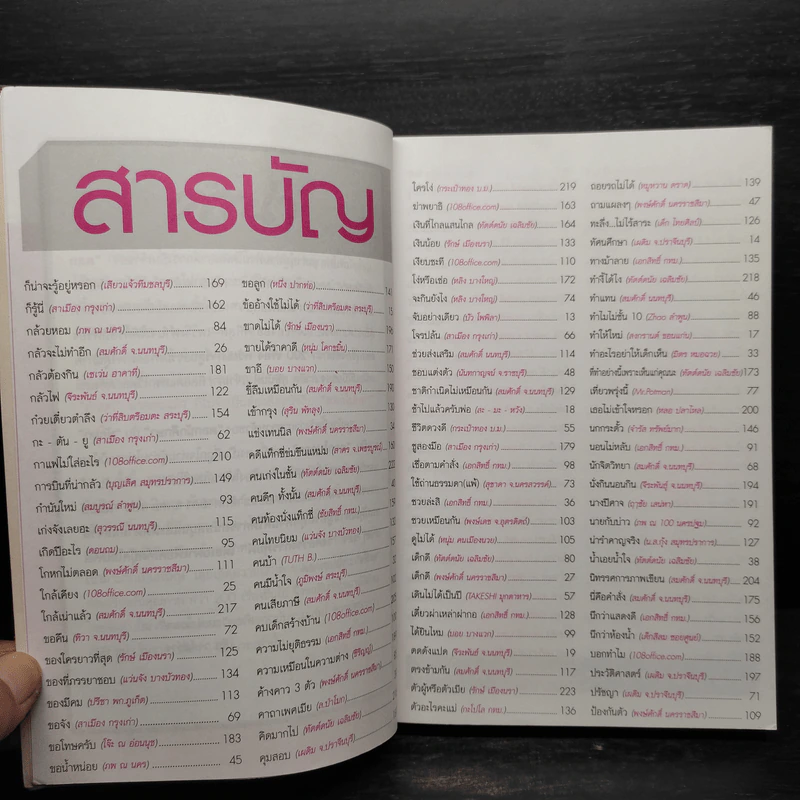 สารบัญ
ก็น่าจะรู้อยู่หรอก (เสียวแจ้วทีมชลบุรี) 169
ก็รู้นี่ (สาเมือง กรุงเก่า) 162
กล้วยหอม (ภพ ณ นคร) 84
กลัวจะไม่ทำอีก (สมศักดิ์ จ.นนทบุรี) 26
กลัวต้องกิน (เชเว่น อาคาที) 181
กลัวไฟ (จีระพันธ์ จ.นนทบุรี) 122
ก๋วยเตี๋ยวตำลึง (ว่าที่สิบตรีอมตะ สระบุรี) 154
กะ - ตัน - ยู (สาเมือง กรุงเก่า) 62
กาแฟไม่ใส่อะไร (108office.com) 210
การบินที่น่ากลัว (บุญเลิศ สมุทรปราการ) 149
กำนันใหม่ (สมบูรณ์ ลำพูน) 93
เก่งจังเลยอะ (สุวรรณี นนทบุรี) 115
เกิดปีอะไร (ตอนถม) 95
โกหกไม่ตลอด (พงษ์ศักดิ์ นครราชสีมา) 111
ใกล้เคียง (108office.com) 25
ใกล้เน่าแล้ว (สมศักดิ์ จ.นนทบุรี) 217
ขอคืน (ทิวา จ.นนทบุรี) 72
ของใครยาวที่สุด (รักษ์ เมืองนรา) 125
ของที่ภรรยาชอบ (แว่นจัง บางบัวทอง) 134
ของมีคม (ปรีชา พท.ภูเก็ต) 113
ขอจัง (สาเมือง กรุงเก่า) 69
ขอโทษครับ (โจ๊ะ ณ อ่อนนุช) 183
ขอน้ำหน่อย (ภพ ณ นคร) 45
ขอลูก (หนึ่ง ปากท่อ)
ข้ออ้างใช้ไม่ได้ (ว่าที่สิบตรีอมตะ สระบุรี)
ขาดไม่ได้ (รักษ์ เมืองนรา)
ขายได้ราคาดี (หนุ่ม โคกขมิ้น)
ขาอี (บอย บางแวก)
ขี้ลืมเหมือนกัน (สมศักดิ์ จ.นนทบุรี)
เข้ากรุง (สุริน พัทลุง)
แข่งเทนนิส (พงษ์ศักดิ์ นครราชสีมา)
คดีแท็กซี่ข่มขืนแหม่ม (สาคร จ.เพชรบูรณ์)
คนเก่งในชั้น (ทัตต์ดนัย เฉลิมชัย)
คนดีๆ ทั้งนั้น (สมศักดิ์ จ.นนทบุรี)
คนท้องนั่งแท็กซี่ (ชัยสิทธิ์ กทม.)
คนไทยนิยม (แว่นจัง บางบัวทอง)
คนบ้า (TUTH B.)
คนมีน้ำใจ (ภูมิพงษ์ สระบุรี)
คนเสียภาษี (สมศักดิ์ จ.นนทบุรี)
คบเด็กสร้างบ้าน (108office.com)
ความไม่ยุติธรรม (เอกสิทธิ์ กทม.)
ความเหมือนในความต่าง
ค้างคาว 3 ตัว (พงษ์ศักดิ์ นครราชสีมา)
คาถาเพศเมีย
คิดมากไป (ทัตต์ดนัย เฉลิมชัย)
คุมสอบ (เผดิม จ.ปราจีนบุรี)
ใครโง่ (กระเป๋าทอง บ.ย.) 219
ฆ่าพยาธิ (108office.com) 163
เงินที่ไกลแสนไกล (ทัตต์ดนัย เฉลิมชัย) 164
เงินน้อย (รักษ์ เมืองนรา) 133
เงียบซะที (108office.com) 110
โง่หรือเซ่อ (หลิง บางใหญ่) 172
จะกินยังไง (หลิง บางใหญ่) 74
จับอย่างเดียว (บัว ไพลิน) 13
โจรปล้น (สาเมือง กรุงเก่า) 66
ช่วยส่งเสริม (สมศักดิ์ จ.นนทบุรี) 114
ชอบแต่งตัว (นันทกาญจน์ จ.ราชบุรี) 48
ชาติกำเนิดไม่เหมือนกัน (สมศักดิ์ จ.นนทบุรี) 129
ช้าไปแล้วครับพ่อ (ละ - มะ - หวัง) 18
ชีวิตดวงดี (กระเป๋าทอง บ.ม.) 55
ชูสองมือ (สาเมือง กรุงเก่า) 179
เชื่อตามคำสั่ง (เอกสิทธิ์ กทม.) 98
ใช้ถ่านธรรมดา(แพ้) (สุชาดา จ.นครสวรรค์) 73
ซวยล่ะสิ (เอกสิทธิ์ กทม.) 36
ซวยเหมือนกัน (พงษ์เดช จ.อุตรดิตถ์) 103
ดูไม่ได้ (หนุ่ม คนเมืองนวย) 105
เด็กดี (ทัตต์ดนัย เฉลิมชัย) 80
เด็กดี (พงษ์ศักดิ์ นครราชสีมา) 27
เดินไม่ได้เป็นปี (TAKESHI มุกดาหาร) 57
เดี๋ยวผ่าเหล่าผ่ากอ (เอกสิทธิ์ กทม.) 128
ได้ยินไหม (บอย บางแวก) 99
ตดดังแปด (จีระพันธ์ จ.นนทบุรี) 19
ตรงข้ามกัน (สมศักดิ์ จ.นนทบุรี) 117
ตัวผู้หรือตัวเมีย (รักษ์ เมืองนรา) 223
ตัวอะไรคะแม่ (กปโปโล กทม.) 136
ถอยรถไม่ได้ (หมูหวาน ตราด) 139
ถามแผลงๆ (พงษ์ศักดิ์ นครราชสีมา) 47
ทะลึ่ง...ไม่ไร้สาระ (เด็ก ไทยศิลป์) 126
ทัศนศึกษา (เผดิม จ.ปราจีนบุรี) 14
ทางม้าลาย (เอกสิทธิ์ กทม.) 135
ทำงี้ได้ไง (ทัตต์ดนัย เฉลิมชัย) 218
ทำแทน (สมศักดิ์ นนทบุรี) 46
ทำไมไม่ชั้น 10 (Zhao ลำพูน) 88
ทำให้ใหม่ (สงกรานต์ ขอนแก่น) 17
ทำอะไรอย่าให้เด็กเห็น (มิตร หมอฉวย) 33
ที่ทำอย่างนี้เพราะเห็นแก่คุณนะ (ทัตต์ดนัย เฉลิมชัย) 173
เที่ยวพรุ่งนี้ (Mr.Potmon) 77
เธอไม่เข้าใจหรอก (หลอ ปลาไหล) 200
นกกระตั้ว (จำรัส ทรัพย์มาก) 146
นอนไม่หลับ (เอกสิทธิ์ กทม.) 91
นักจิตวิทยา (สมศักดิ์ จ.นนทบุรี) 68
นั่งกินนอนกิน (จีระพันธุ์ จ.นนทบุรี) 194
นางปีศาจ (ฤาชัย เลนห่า) 191
นายกับบ่าว (ภพ ณ 100 นครปฐม) 92
น่ารำคาญจริง (เม.ย.กุ้ง สมุทรปราการ) 127
น้ำเอยน้ำใจ (ทัตต์ดนัย เฉลิมชัย) 38
นิทรรศการภาพเขียน (สมศักดิ์ จ.นนทบุรี) 204
นี่คือคำสั่ง (สมศักดิ์ จ.นนทบุรี) 175
นึกว่าแสดงดี (เอกสิทธิ์ กทม.) 156
นึกว่าห้องน้ำ 152
บอกทำไม (108office.com) 188
ประวัติศาสตร์ (เผดิม จ.ปราจีนบุรี) 197
ปรัชญา (เผดิม จ.ปราจีนบุรี) 71
ป้องกันตัว (พงษ์ศักดิ์ นครราชสีมา) 109